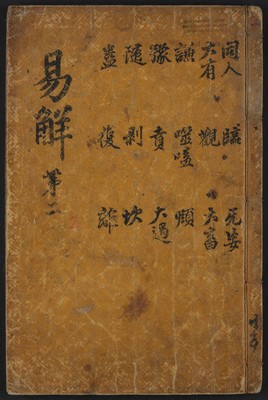 易解
第二
同人 大有 謙 豫 隨 蠱
臨 觀 噬嗑 賁 剝 復
无妄 大畜 頤 大過 坎 離